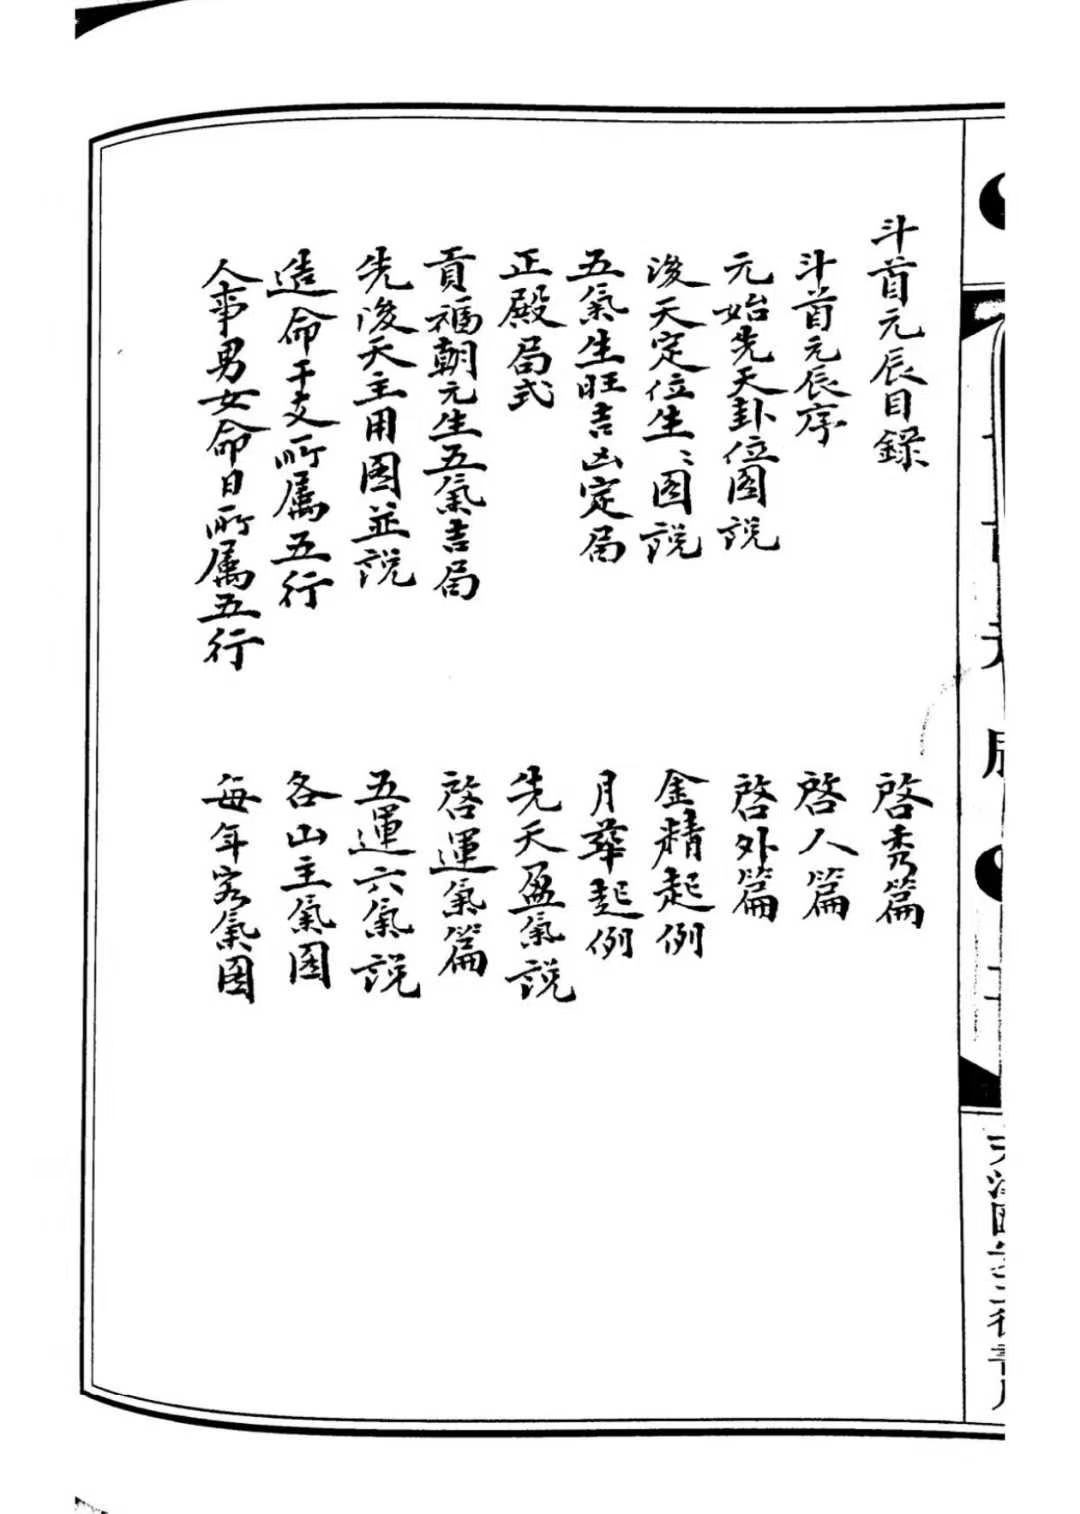 斗首元辰目錄
斗首元辰序
元始先天卦位图說
後天定位生〻图說
五氣生旺吉凶定局
正殿局式
貢福朝元生五氣吉局
先後天主用图並說
造命干支所属五行
人事男女命日所属五行
啓秀篇
啓人篇
啓外篇
金精起例
月華起例
先天盈氣說
啓運氣篇
五運六氣說
各山主氣图
每年客氣图